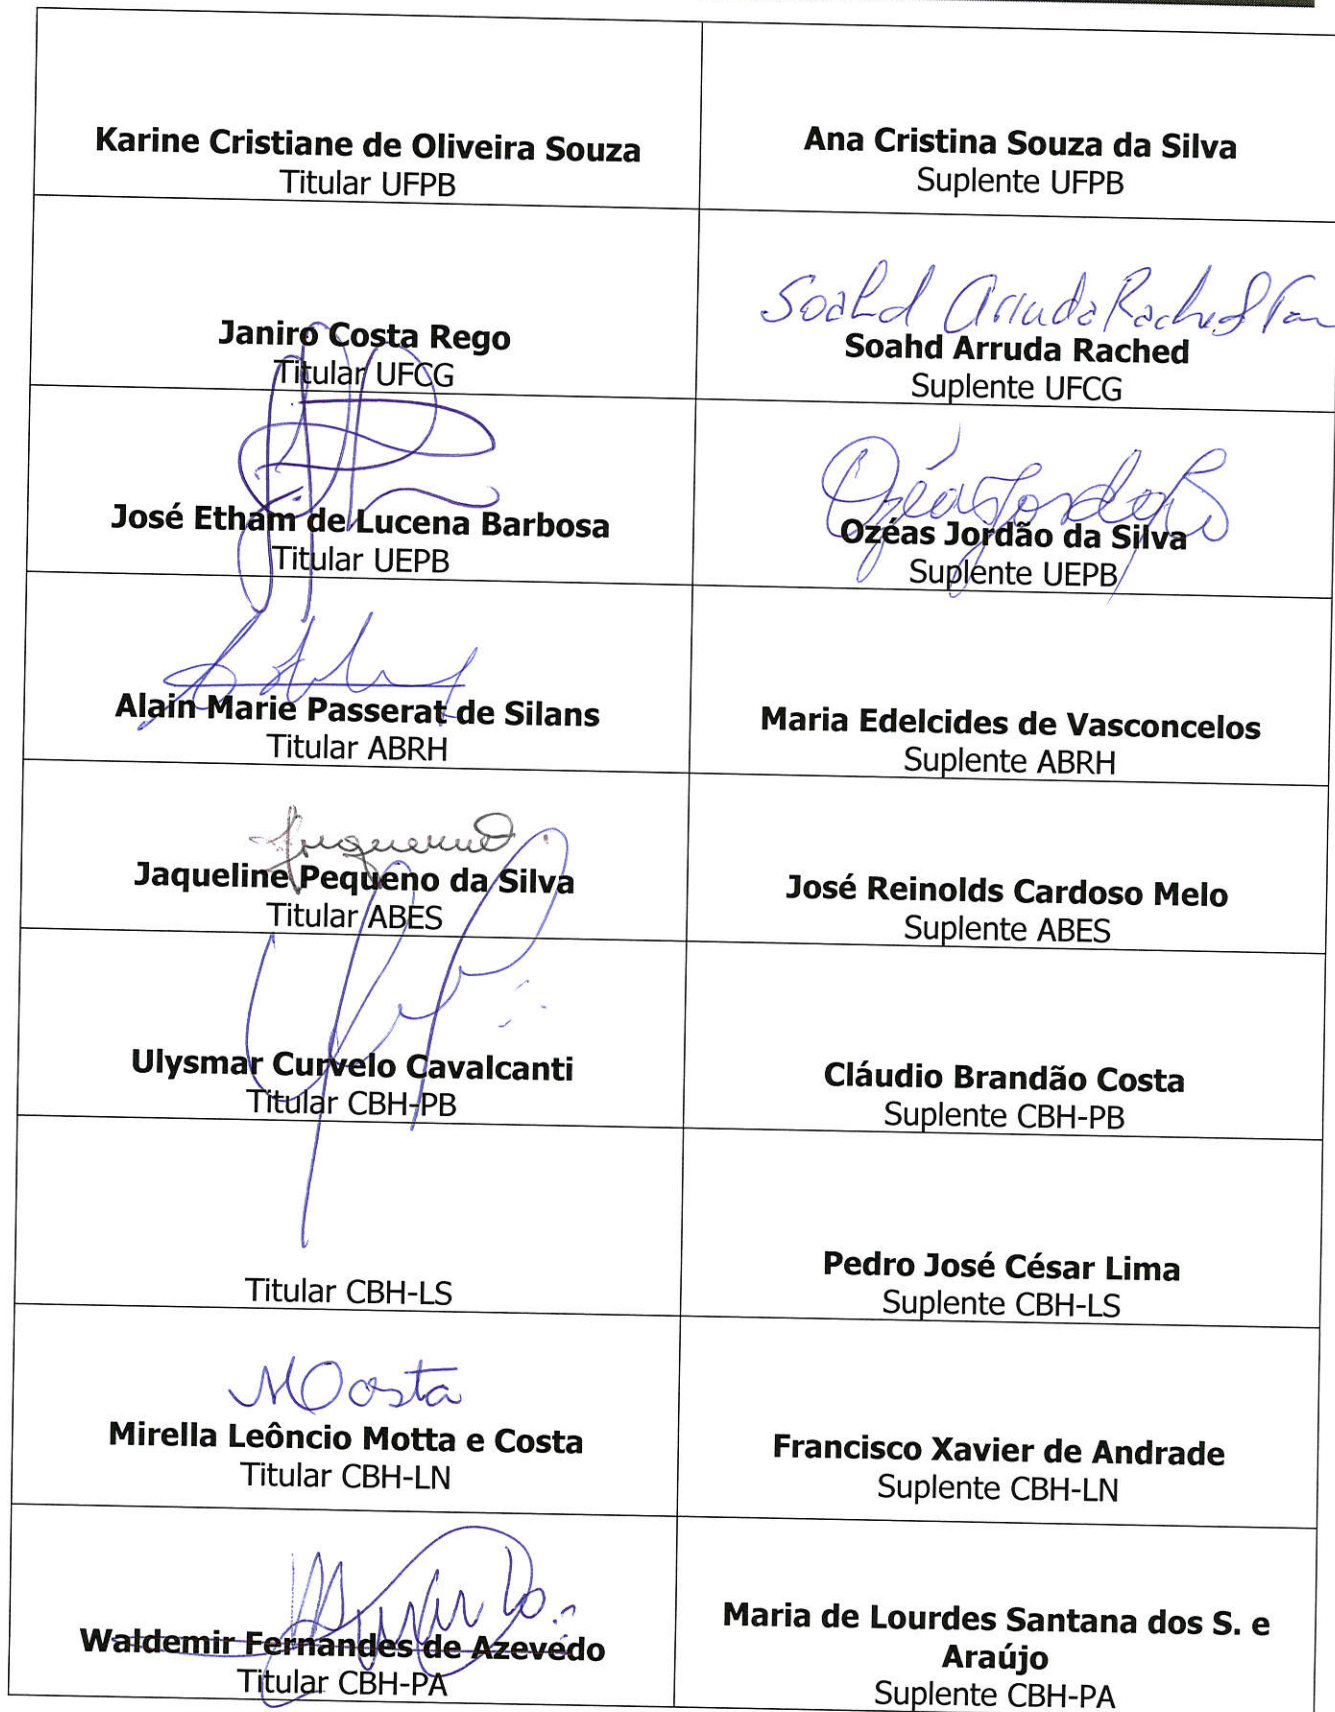 Karine Cristiane de Oliveira Souza
Titular UFPB
Ana Cristina Souza da Silva
Suplente UFPB
Janiro Costa Rego
Titular UFCG
Soahd Arruda Rached
Soahd Arruda Rached
Suplente UFCG
José Etham de Lucena Barbosa
Titular UEPB
Ozéas Jordão da Silva
Suplente UEPB
Alain Marie Passerat de Silans
Titular ABRH
Maria Edelcides de Vasconcelos
Suplente ABRH
Jaqueline Pequeno da Silva
Titular ABES
José Reinolds Cardoso Melo
Suplente ABES
Ulysmar Curvelo Cavalcanti
Titular CBH-PB
Cláudio Brandão Costa
Suplente CBH-PB
Titular CBH-LS
Pedro José César Lima
Suplente CBH-LS
MCosta
Mirella Leôncio Motta e Costa
Titular CBH-LN
Francisco Xavier de Andrade
Suplente CBH-LN
Waldemir Fernandes de Azevedo
Titular CBH-PA
Maria de Lourdes Santana dos S. e
Araújo
Suplente CBH-PA